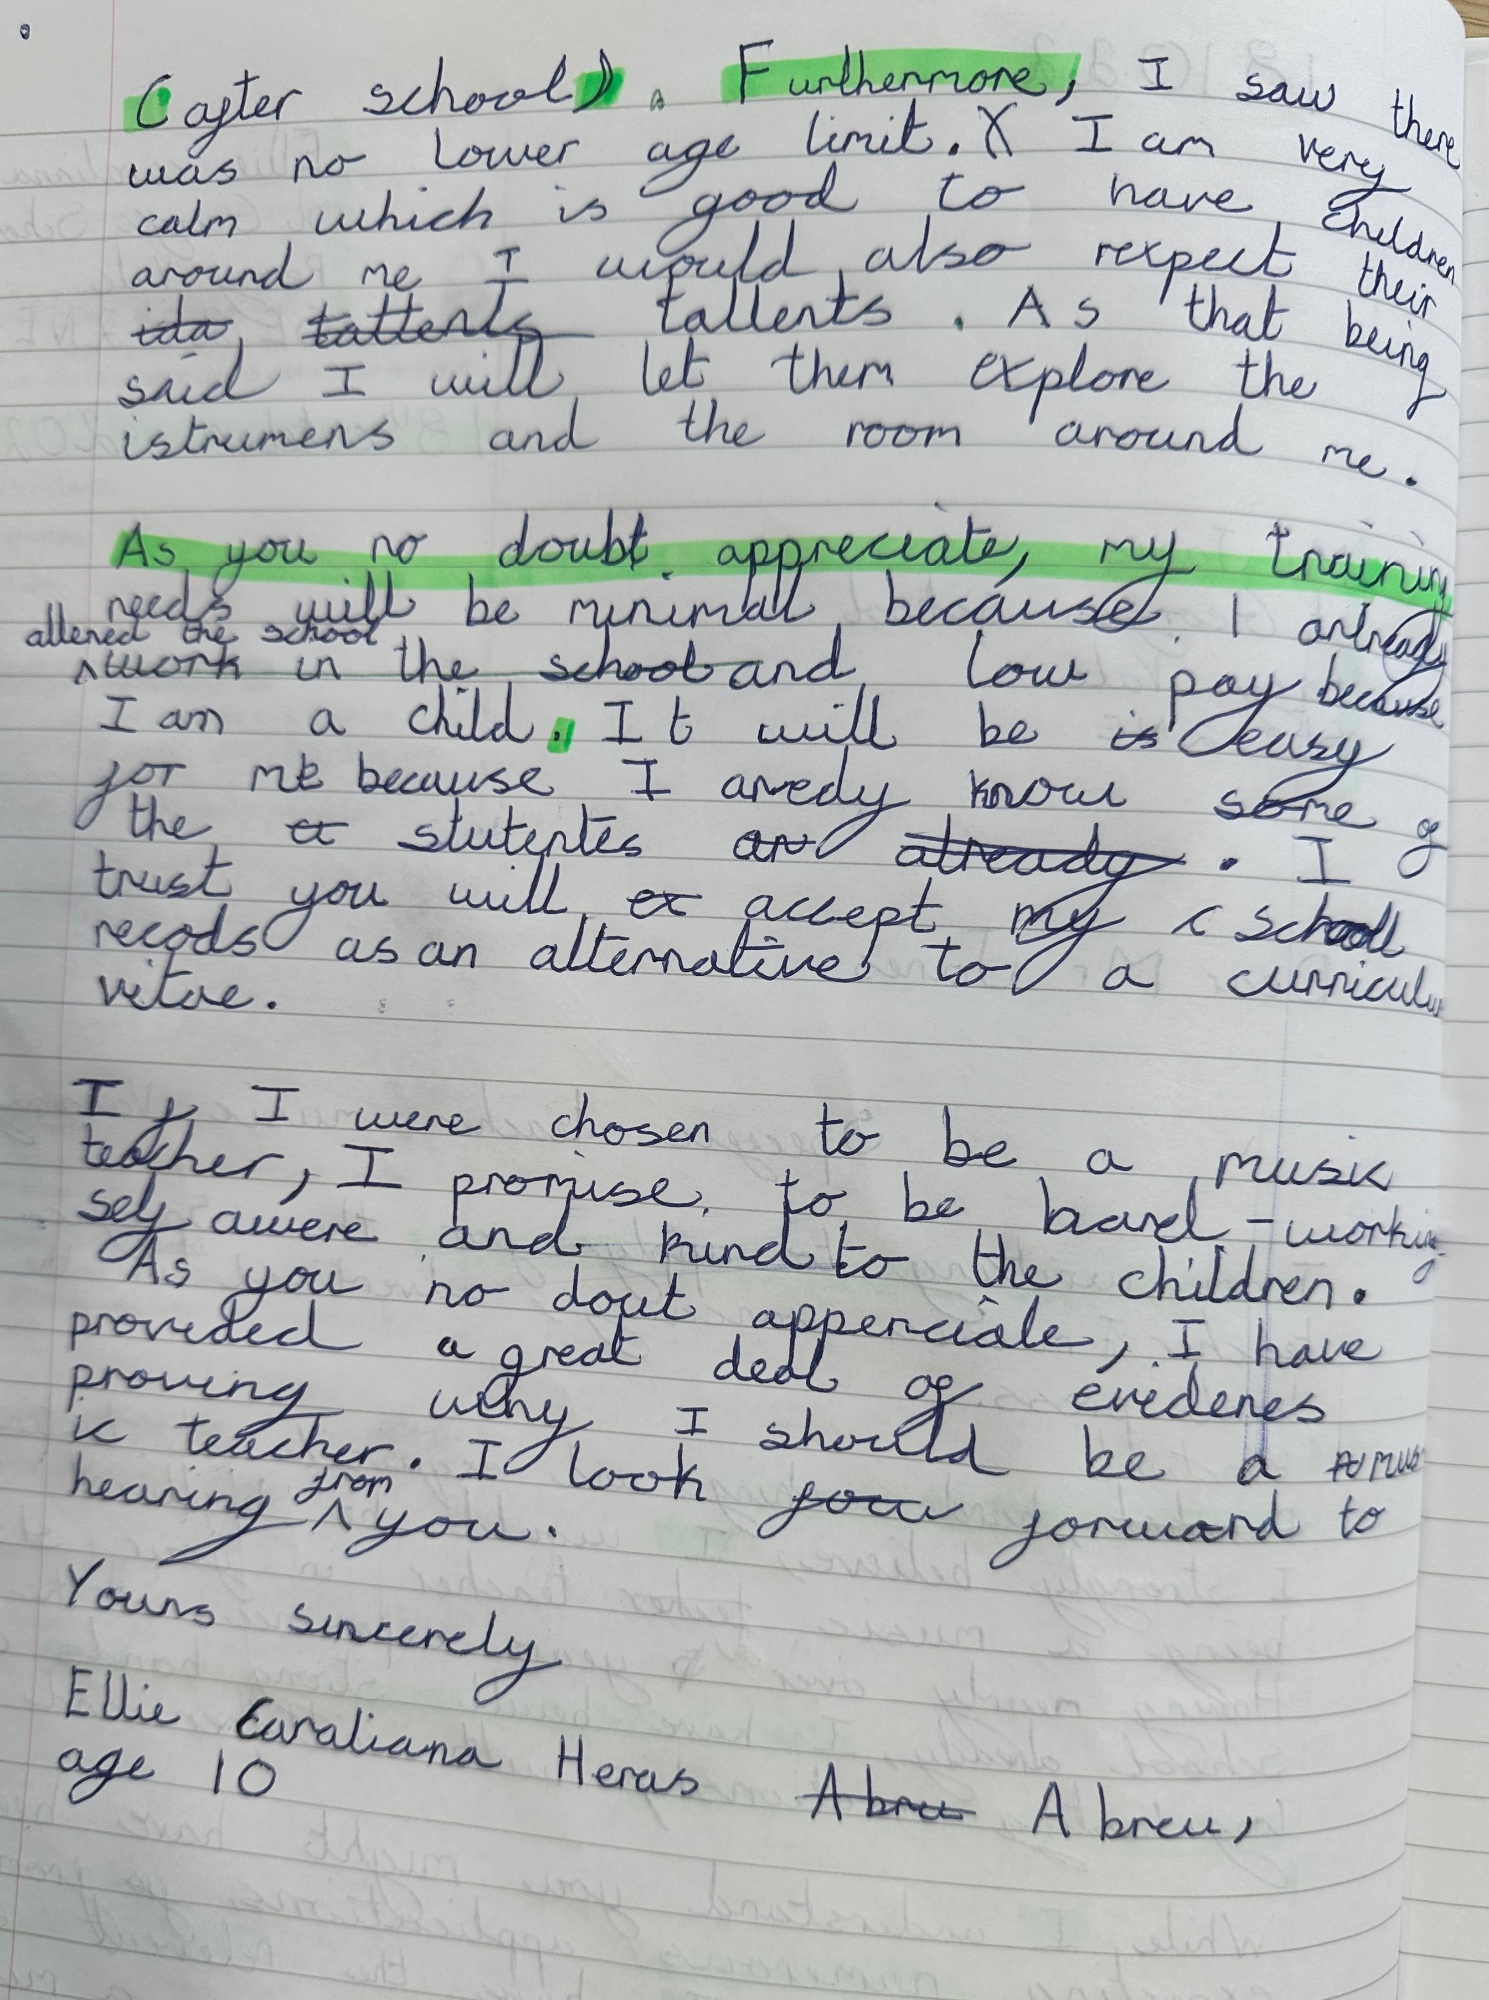 (after school). Furthermore, I saw there
was no lower age limit. X I am very
calm which is good to have children
around me I would also rexpect their
ida tattents tallents. As that being
said I will let them explore the
istrumens and the room around me.
As you no doubt appreciate, my training
needs will be minimal because I arlready
attened the school
^work in the school and low pay because
I am a child. It will be is easy
for me because I aredy know some of
the st stutentes ar already. I
trust you will ex accept my c school
recods as an alternative to a curriculum
vitae.
If I were chosen to be a music
teacher, I promise to be hard-working
self awere and kind to the children.
As you no dout apperciate, I have
provided a great deal of evidenes
proving why I should be a mus
ic teacher. I look fow forward to
hearing ^from you.
Yours sincerely
Ellie Caraliana Heras Abru Abreu,
age 10